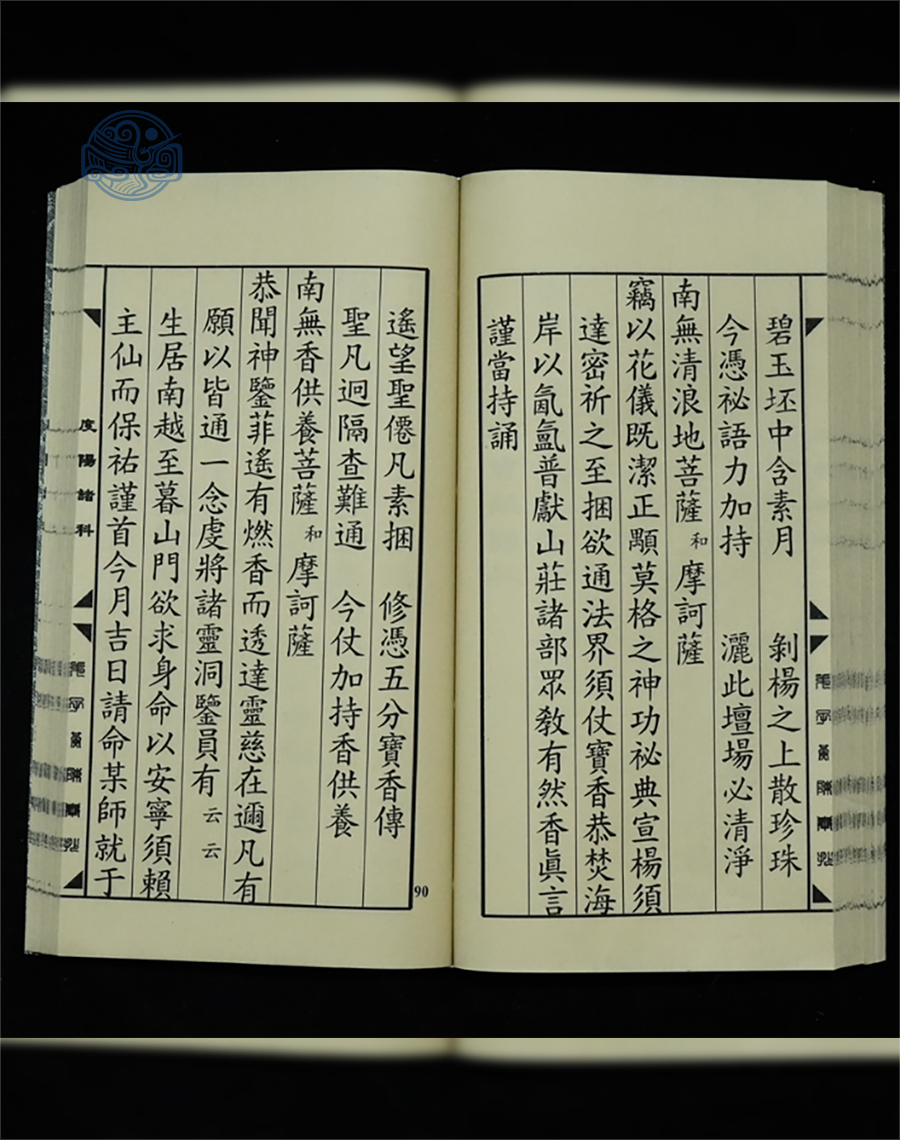 碧玉坯中含素月　剝楊之上散珍珠
今憑祕語力加持　灑此壇場必清淨
南無清浪地菩薩 和 摩訶薩
竊以花儀既潔正顒莫格之神功祕典宣楊須
達密祈之至捆欲通法界須仗寶香恭焚海
岸以氤氳普獻山莊諸部眾教有然香眞言
謹當持誦
遙望聖僊凡素捆　修憑五分寶香傳
聖凡迥隔查難通　今仗加持香供養
南無香供養菩薩 和 摩訶薩
恭聞神鑒菲遙有燃香而透達靈慈在邇凡有
願以皆通一念虔將諸靈洞鑒員有 云云
生居南越至暮山門欲求身命以安寧須賴
主仙而保祐謹首今月吉日請命某師就于
度陽諸科
90